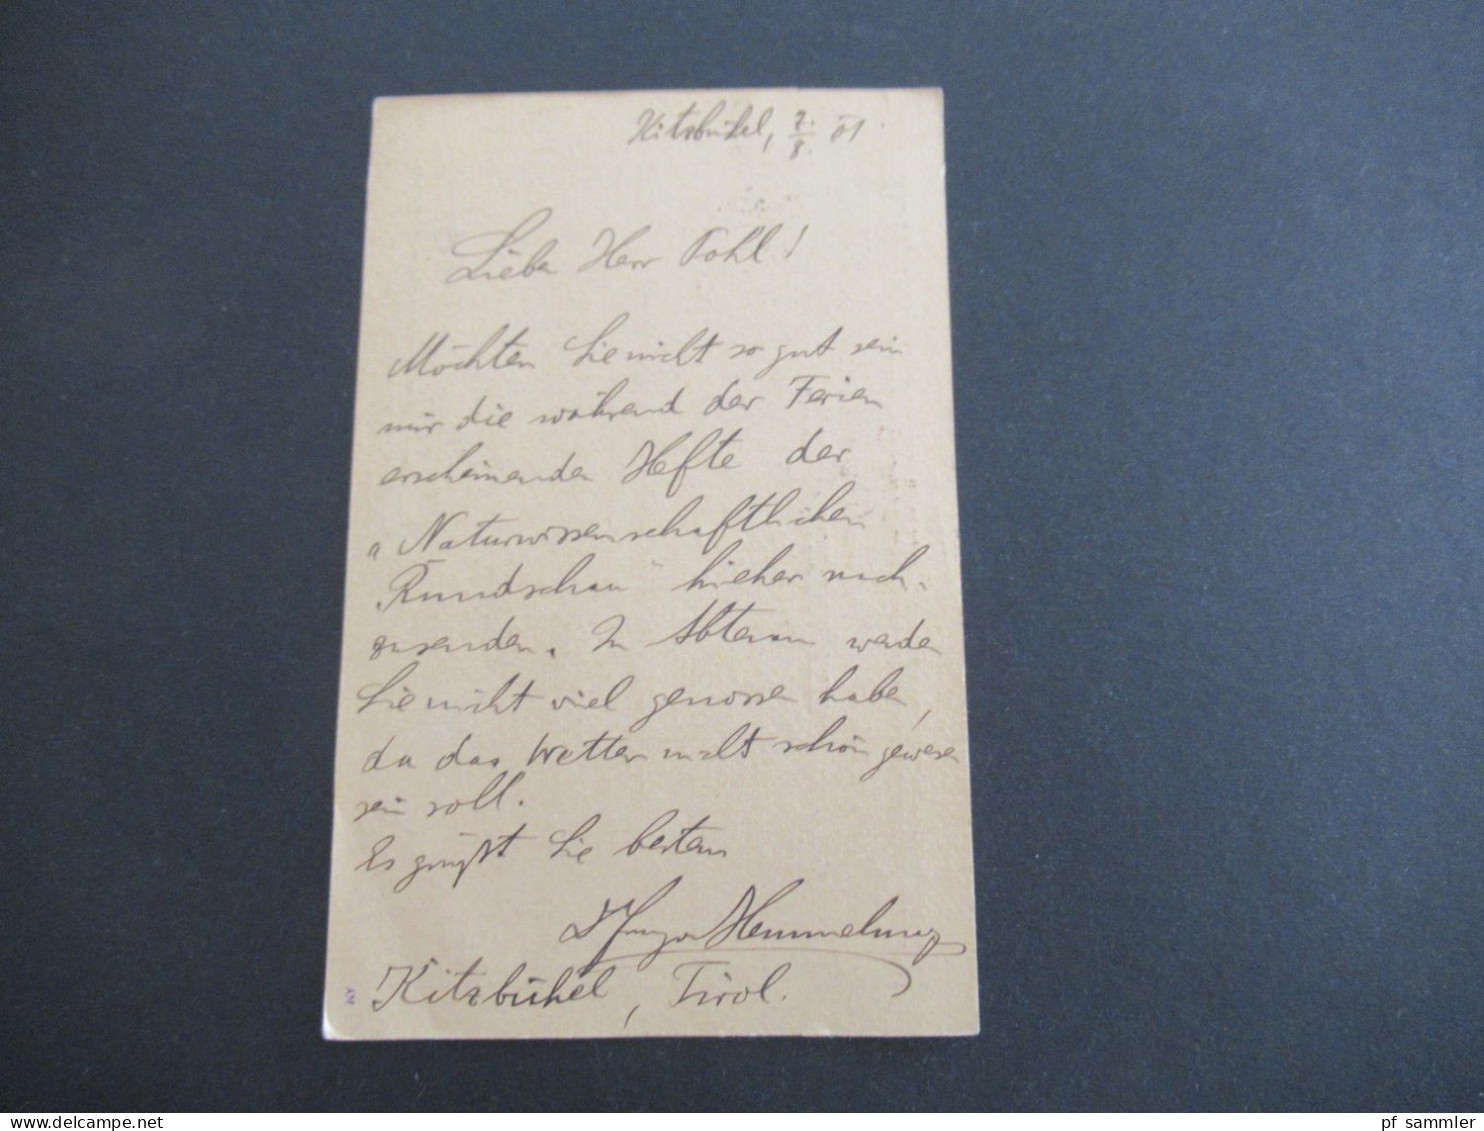 Kitzbühel, 7./8. 01
Lieber Herr Pohl!
Möchten Sie nicht so gut sein
mir die während der Ferien
erscheinenden Hefte der
„Naturwissenschaftlichen
Rundschau" hieher nach-
zusenden. In Abtenau werden
Sie nicht viel genossen haben,
da das Wetter nicht schön gewesen
sein soll.
Es grüßt Sie bestens
Hugo
Kitzbühel, Tirol.
www.delcampe.net
pf sammler